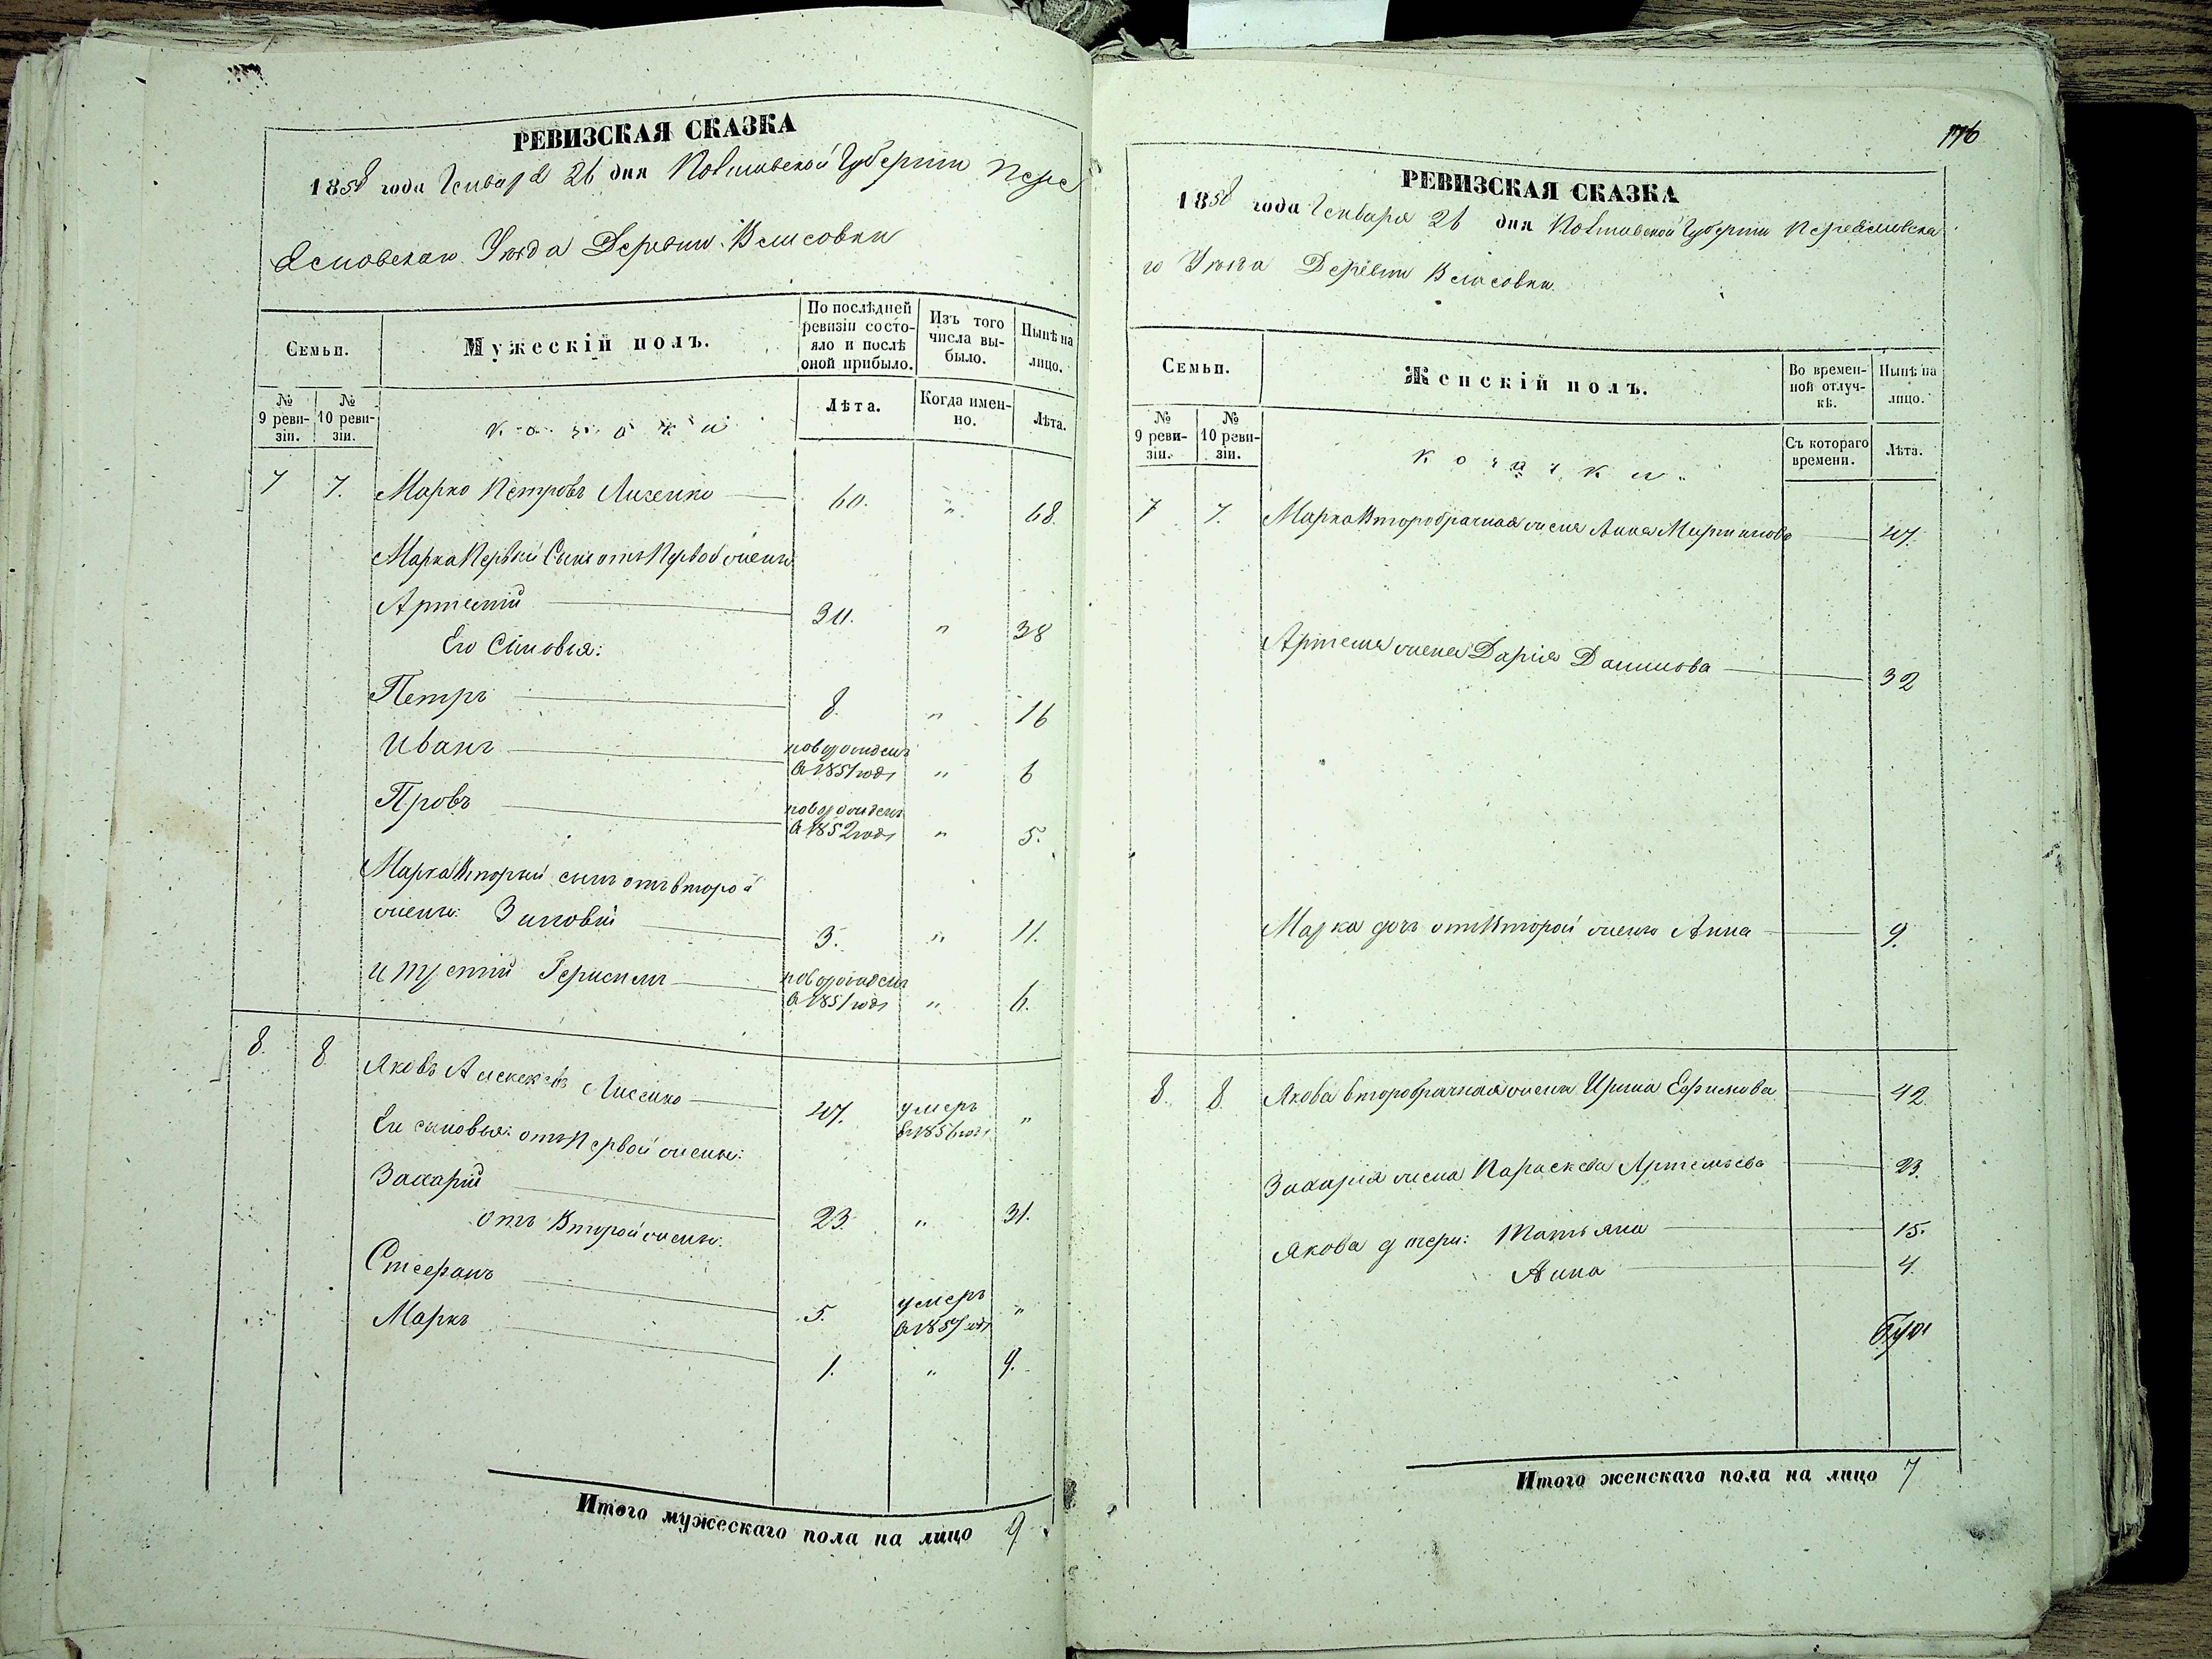 РЕВИЗСКАЯ СКАЗКА
1858 года Генваря 26 дня Полтавской Губернии Пере
яславскаго Уѣзда Деревни Власовки
Семьи.
Мужескій полъ.
По послѣдней ревизіи состояло и послѣ оной прибыло.
Изъ того числа выбыло.
Нынѣ на лицо.
№ 9 ревизіи.
№ 10 ревизіи.
козаки
Лѣта.
Когда именно.
Лѣта.
7 7. Марко Петровъ Лисенко 60. " 68.
Марка Первый Сынъ отъ Первой жены
Артемій 30. " 38
Его Сыновья:
Петръ 8. " 16
Иванъ новорожденъ
въ 1851 годѣ " 6
Провъ новорожденъ
въ 1852 годѣ " 5.
Марка Вторый сынъ отъ второй
жены: Зиновій 3. " 11.
и Третій Герасимъ новорожденъ
въ 1851 годѣ " 6.
8. 8 Яковъ Алексѣевъ Лисенко 47. умеръ
въ 1856 годѣ "
Его сыновья: отъ Первой жены:
Захарій 23. " 31.
отъ Второй жены:
Стефанъ 5. умеръ
въ 1857 годѣ "
Маркъ 1. " 9.
Итого мужескаго пола на лицо 9.
176
РЕВИЗСКАЯ СКАЗКА
1858 года Генваря 26 дня Полтавской Губернии Переяславска
го Уѣзда Деревни Власовки
Семьи.
Женскій полъ.
Во временной отлучкѣ.
Нынѣ на лицо.
№ 9 ревизіи.
№ 10 ревизіи.
козачки.
Съ котораго времени.
Лѣта.
7 7. Марка Второбрачная жена Анна Мартинова 47.
Артема жена Дарія Данилова 32
Марка дочь отъ Второй жены Анна 9.
8. 8. Якова второбрачная жена Ирина Ефимова 42.
Захарія жена Параскева Артемьева 23.
Якова дтери: Татьяна 15.
Анна 4.
Итого женскаго пола на лицо 7